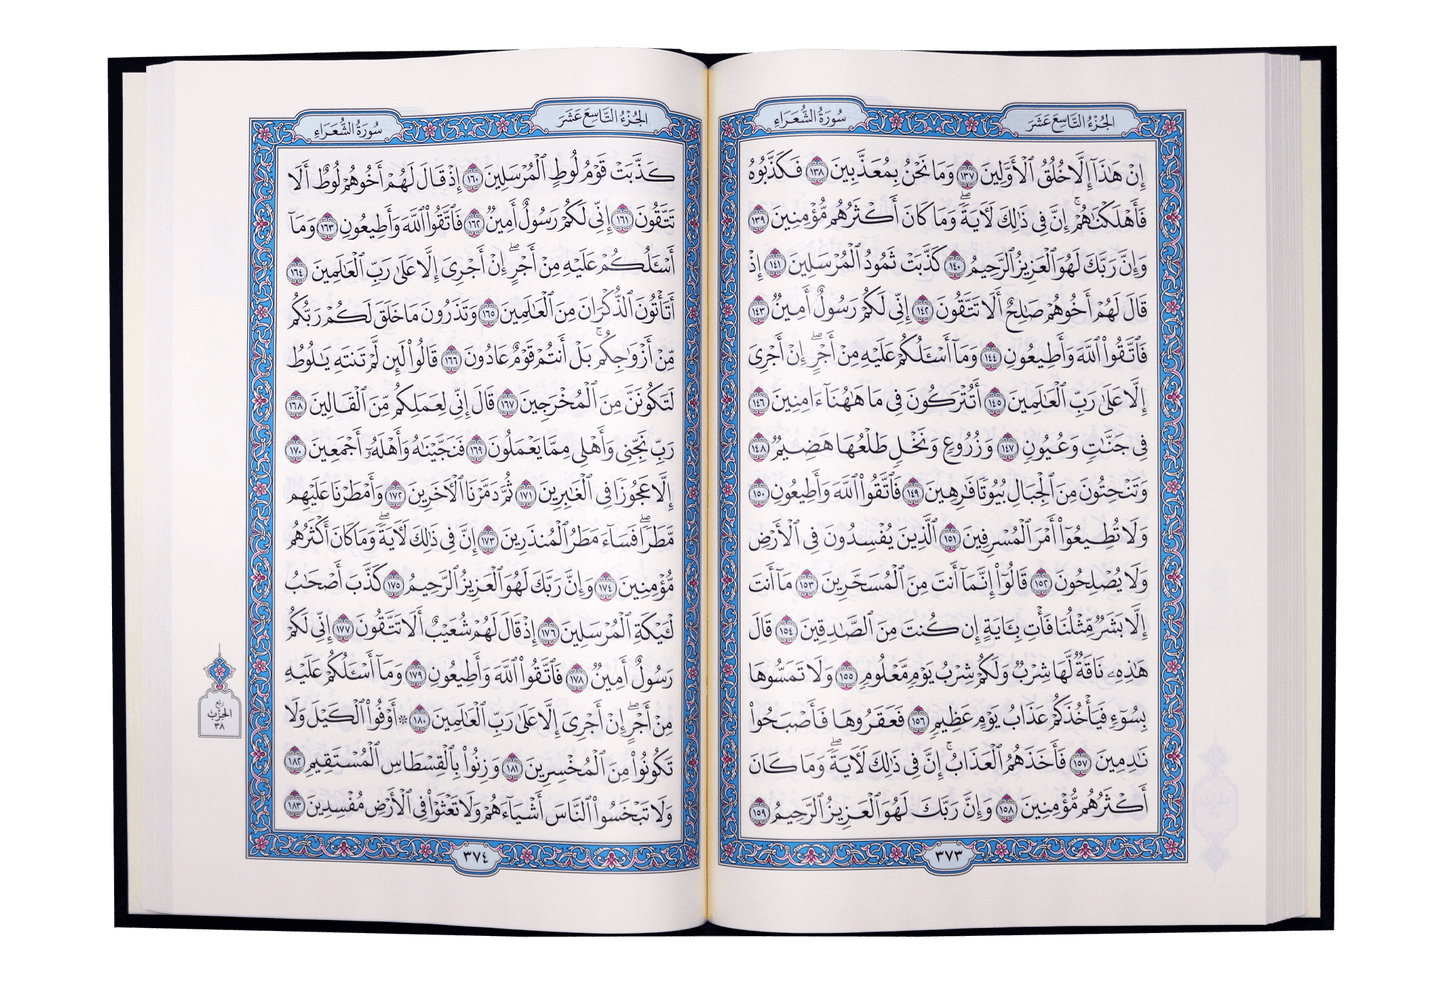 الجزء التاسع عشر
سورة الشعراء
إِنْ هَٰذَآ إِلَّا خُلُقُ ٱلْأَوَّلِينَ ١٣٧ وَمَا نَحْنُ بِمُعَذَّبِينَ ١٣٨ فَكَذَّبُوهُ
فَأَهْلَكْنَٰهُمْ ۗ إِنَّ فِي ذَٰلِكَ لَءَايَةً ۖ وَمَا كَانَ أَكْثَرُهُم مُّؤْمِنِينَ ١٣٩
وَإِنَّ رَبَّكَ لَهُوَ ٱلْعَزِيزُ ٱلرَّحِيمُ ١٤٠ كَذَّبَتْ ثَمُودُ ٱلْمُرْسَلِينَ ١٤١ إِذْ
قَالَ لَهُمْ أَخُوهُمْ صَٰلِحٌ أَلَا تَتَّقُونَ ١٤٢ إِنِّي لَكُمْ رَسُولٌ أَمِينٌ ١٤٣
فَٱتَّقُوا۟ ٱللَّهَ وَأَطِيعُونِ ١٤٤ وَمَآ أَسْـَٔلُكُمْ عَلَيْهِ مِنْ أَجْرٍ ۖ إِنْ أَجْرِىَ
إِلَّا عَلَىٰ رَبِّ ٱلْعَٰلَمِينَ ١٤٥ أَتُتْرَكُونَ فِي مَا هَٰهُنَآ ءَامِنِينَ ١٤٦
فِي جَنَّٰتٍ وَعُيُونٍ ١٤٧ وَزُرُوعٍ وَنَخْلٍ طَلْعُهَا هَضِيمٌ ١٤٨
وَتَنْحِتُونَ مِنَ ٱلْجِبَالِ بُيُوتًا فَٰرِهِينَ ١٤٩ فَٱتَّقُوا۟ ٱللَّهَ وَأَطِيعُونِ ١٥٠
وَلَا تُطِيعُوٓا۟ أَمْرَ ٱلْمُسْرِفِينَ ١٥١ ٱلَّذِينَ يُفْسِدُونَ فِي ٱلْأَرْضِ
وَلَا يُصْلِحُونَ ١٥٢ قَالُوٓا۟ إِنَّمَآ أَنتَ مِنَ ٱلْمُسَحَّرِينَ ١٥٣ مَآ أَنتَ
إِلَّا بَشَرٌ مِّثْلُنَا فَأْتِ بِـَٔايَةٍ إِن كُنتَ مِنَ ٱلصَّٰدِقِينَ ١٥٤ قَالَ
هَٰذِهِۦ نَاقَةٌ لَّهَا شِرْبٌ وَلَكُمْ شِرْبُ يَوْمٍ مَّعْلُومٍ ١٥٥ وَلَا تَمَسُّوهَا
بِسُوٓءٍ فَيَأْخُذَكُمْ عَذَابُ يَوْمٍ عَظِيمٍ ١٥٦ فَعَقَرُوهَا فَأَصْبَحُوا۟
نَٰدِمِينَ ١٥٧ فَأَخَذَهُمُ ٱلْعَذَابُ ۗ إِنَّ فِي ذَٰلِكَ لَءَايَةً ۖ وَمَا كَانَ
أَكْثَرُهُم مُّؤْمِنِينَ ١٥٨ وَإِنَّ رَبَّكَ لَهُوَ ٱلْعَزِيزُ ٱلرَّحِيمُ ١٥٩
٣٧٣
الجزء التاسع عشر
سورة الشعراء
كَذَّبَتْ قَوْمُ لُوطٍ ٱلْمُرْسَلِينَ ١٦٠ إِذْ قَالَ لَهُمْ أَخُوهُمْ لُوطٌ أَلَا
تَتَّقُونَ ١٦١ إِنِّي لَكُمْ رَسُولٌ أَمِينٌ ١٦٢ فَٱتَّقُوا۟ ٱللَّهَ وَأَطِيعُونِ ١٦٣ وَمَآ
أَسْـَٔلُكُمْ عَلَيْهِ مِنْ أَجْرٍ ۖ إِنْ أَجْرِىَ إِلَّا عَلَىٰ رَبِّ ٱلْعَٰلَمِينَ ١٦٤
أَتَأْتُونَ ٱلذُّكْرَانَ مِنَ ٱلْعَٰلَمِينَ ١٦٥ وَتَذَرُونَ مَا خَلَقَ لَكُمْ رَبُّكُم
مِّنْ أَزْوَٰجِكُم ۚ بَلْ أَنتُمْ قَوْمٌ عَادُونَ ١٦٦ قَالُوا۟ لَئِن لَّمْ تَنتَهِ يَٰلُوطُ
لَتَكُونَنَّ مِنَ ٱلْمُخْرَجِينَ ١٦٧ قَالَ إِنِّي لِعَمَلِكُم مِّنَ ٱلْقَالِينَ ١٦٨
رَبِّ نَجِّنِي وَأَهْلِي مِمَّا يَعْمَلُونَ ١٦٩ فَنَجَّيْنَٰهُ وَأَهْلَهُۥٓ أَجْمَعِينَ ١٧٠
إِلَّا عَجُوزًا فِي ٱلْغَٰبِرِينَ ١٧١ ثُمَّ دَمَّرْنَا ٱلْءَاخَرِينَ ١٧٢ وَأَمْطَرْنَا عَلَيْهِم
مَّطَرًا ۖ فَسَآءَ مَطَرُ ٱلْمُنذَرِينَ ١٧٣ إِنَّ فِي ذَٰلِكَ لَءَايَةً ۖ وَمَا كَانَ أَكْثَرُهُم
مُّؤْمِنِينَ ١٧٤ وَإِنَّ رَبَّكَ لَهُوَ ٱلْعَزِيزُ ٱلرَّحِيمُ ١٧٥ كَذَّبَ أَصْحَٰبُ
لْـَٔيْكَةِ ٱلْمُرْسَلِينَ ١٧٦ إِذْ قَالَ لَهُمْ شُعَيْبٌ أَلَا تَتَّقُونَ ١٧٧ إِنِّي لَكُمْ
رَسُولٌ أَمِينٌ ١٧٨ فَٱتَّقُوا۟ ٱللَّهَ وَأَطِيعُونِ ١٧٩ وَمَآ أَسْـَٔلُكُمْ عَلَيْهِ
مِنْ أَجْرٍ ۖ إِنْ أَجْرِىَ إِلَّا عَلَىٰ رَبِّ ٱلْعَٰلَمِينَ ١٨٠ ۞ أَوْفُوا۟ ٱلْكَيْلَ وَلَا
تَكُونُوا۟ مِنَ ٱلْمُخْسِرِينَ ١٨١ وَزِنُوا۟ بِٱلْقِسْطَاسِ ٱلْمُسْتَقِيمِ ١٨٢
وَلَا تَبْخَسُوا۟ ٱلنَّاسَ أَشْيَآءَهُمْ وَلَا تَعْثَوْا۟ فِي ٱلْأَرْضِ مُفْسِدِينَ ١٨٣
ربع
الحزب
٣٨
٣٧٤